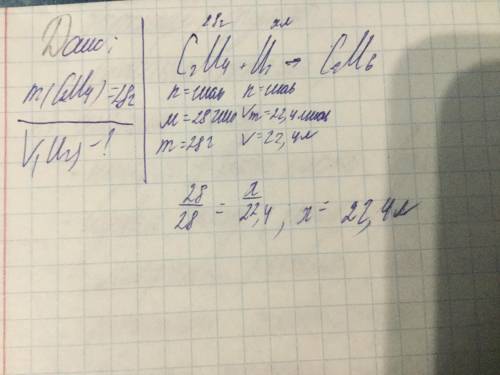 Дано:
m(C2H4)=28г
V(H2)-?
28г xл
C2H4+H2→C2H6
n=1моль n=1моль
M=28г/моль Vm=22,4л/моль
m=28г V=22,4л
28/28 = x/22,4, x= 22,4л